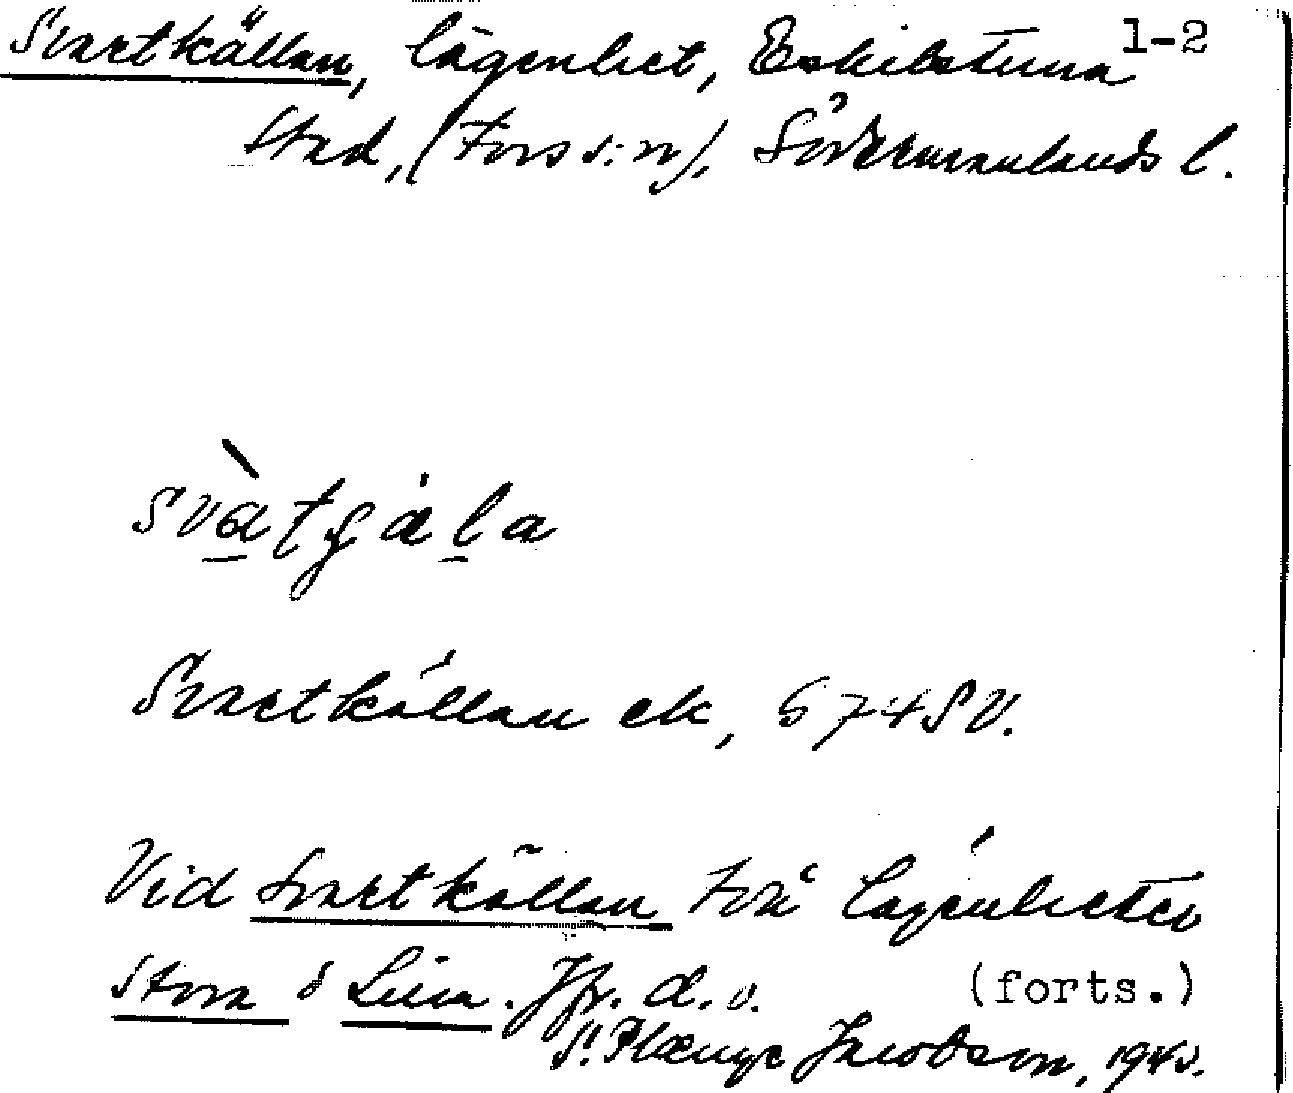 Svartkällan, lägenhet, Eskilstuna 1-2
Stad, (Fors s:n), Södermanlands l.
svàtçäla
Svartkällan ek, 574SV.
Vid Svartkällan två lägenheter
Stora o Lilla. Jfr. d.o. (forts.)
Jacobson, 194